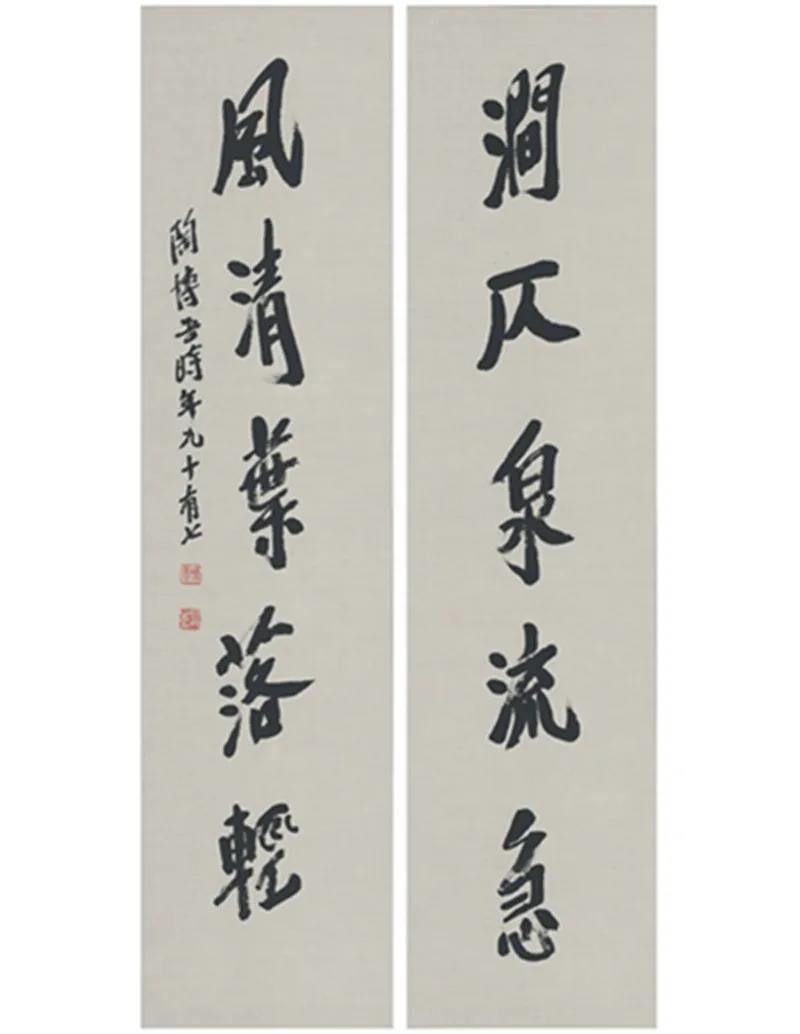 澗仄泉流急
風清葉落輕
陶博吾時年九十有七